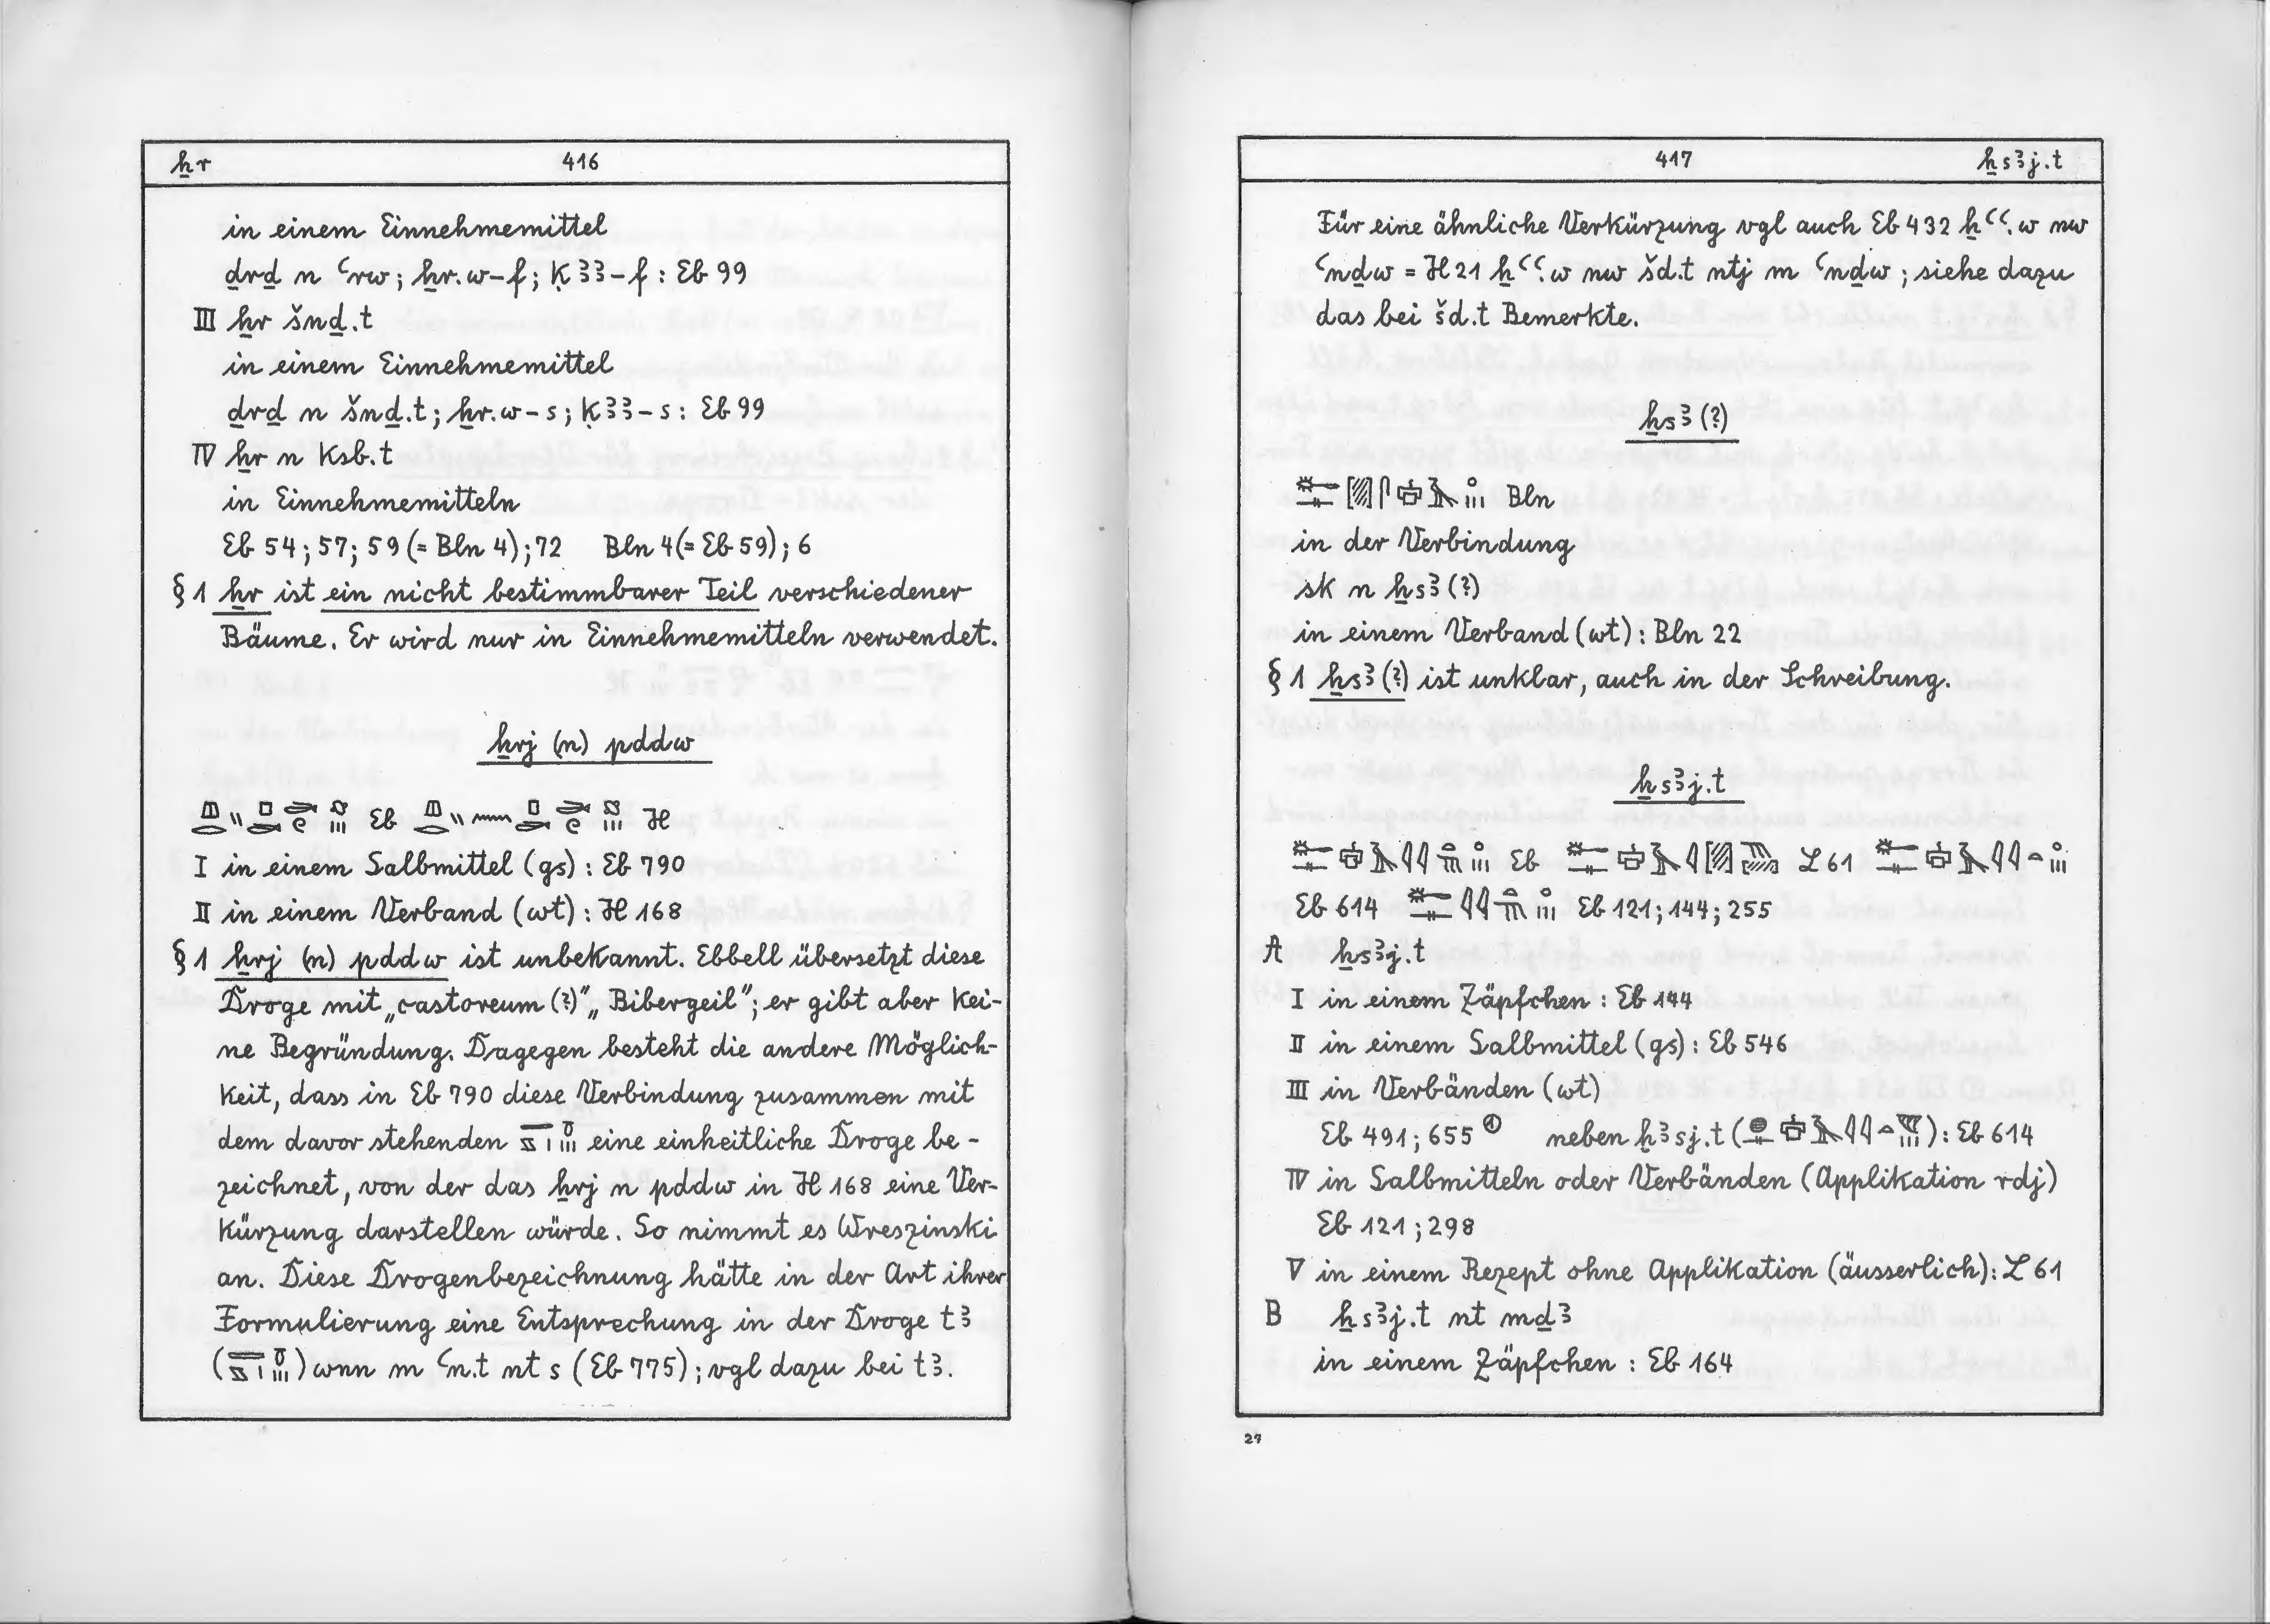 ẖr 416
in einem Einnehmemittel
ḏrḏ n ꜥrw; ẖr.w-f; ḳꜣꜣ-f : Eb 99
III ẖr šnḏ.t
in einem Einnehmemittel
ḏrḏ n šnḏ.t; ẖr.w-s; ḳꜣꜣ-s: Eb 99
IV ẖr n ksb.t
in Einnehmemitteln
Eb 54; 57; 59 (= Bln 4); 72 Bln 4 (= Eb 59); 6
§ 1 ẖr ist ein nicht bestimmbarer Teil verschiedener
Bäume. Er wird nur in Einnehmemitteln verwendet.
ẖrj (n) pddw
Eb H
I in einem Salbmittel (gs) : Eb 790
II in einem Verband (wt) : H 168
§ 1 ẖrj (n) pddw ist unbekannt. Ebbell übersetzt diese
Droge mit „castoreum (?)" „Bibergeil"; er gibt aber kei-
ne Begründung. Dagegen besteht die andere Möglich-
keit, dass in Eb 790 diese Verbindung zusammen mit
dem davor stehenden eine einheitliche Droge be-
zeichnet, von der das ẖrj n pddw in H 168 eine Ver-
kürzung darstellen würde. So nimmt es Wreszinski
an. Diese Drogenbezeichnung hätte in der Art ihrer
Formulierung eine Entsprechung in der Droge tꜣ
( ) wnn m ꜥn.t nt s (Eb 775); vgl dazu bei tꜣ.
417 ẖsꜣj.t
Für eine ähnliche Verkürzung vgl auch Eb 432 ẖꜥꜥ.w nw
ꜥnḏw = H 21 ẖꜥꜥ.w nw šd.t ntj m ꜥnḏw; siehe dazu
das bei šd.t Bemerkte.
ẖsꜣ (?)
Bln
in der Verbindung
sk n ẖsꜣ (?)
in einem Verband (wt) : Bln 22
§ 1 ẖsꜣ (?) ist unklar, auch in der Schreibung.
ẖsꜣj.t
Eb L 61
Eb 614 Eb 121; 144; 255
A ẖsꜣj.t
I in einem Zäpfchen : Eb 144
II in einem Salbmittel (gs) : Eb 546
III in Verbänden (wt)
Eb 491; 655 ① neben ẖꜣsj.t ( ) : Eb 614
IV in Salbmitteln oder Verbänden (Applikation rdj)
Eb 121; 298
V in einem Rezept ohne Applikation (äusserlich): L 61
B ẖsꜣj.t nt mḏꜣ
in einem Zäpfchen : Eb 164
27